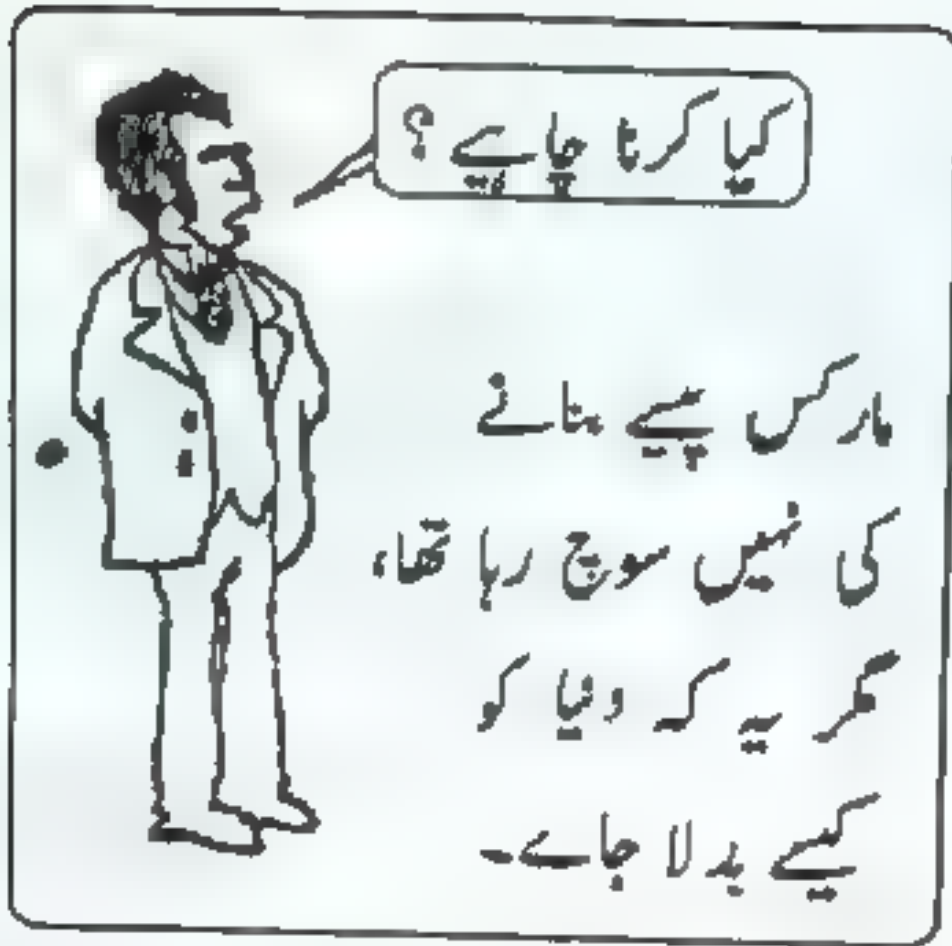 کیا کرنا چاہیے ؟
مارکس پیسے بنانے
کی نہیں سوچ رہا تھا،
مگر یہ کہ دنیا کو
کیسے بدلا جاے۔